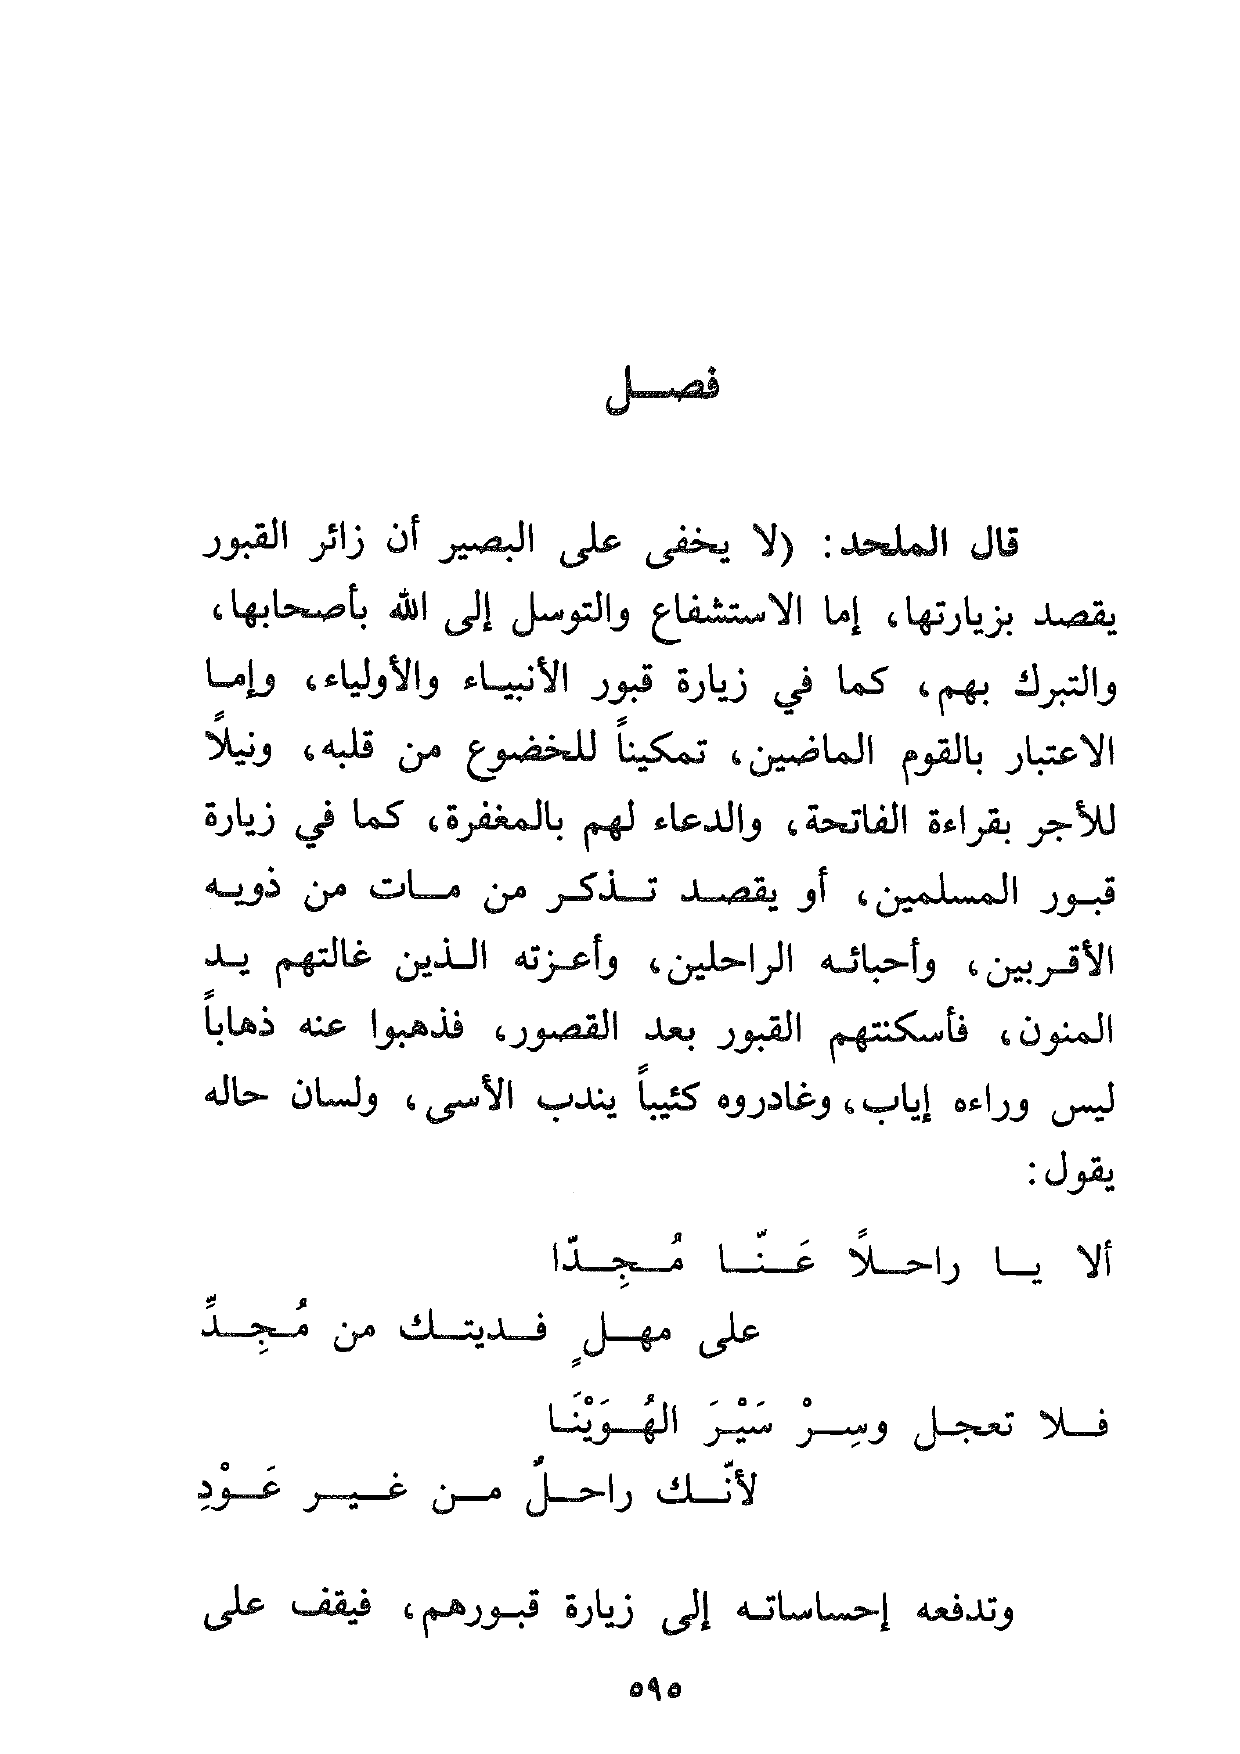 فصل
قال الملحد: (لا يخفى على البصير أن زائر القبور
يقصد بزيارتها، إما الاستشفاع والتوسل إلى الله بأصحابها،
والتبرك بهم، كما في زيارة قبور الأنبياء والأولياء، وإما
الاعتبار بالقوم الماضين، تمكيناً للخضوع من قلبه، ونيلاً
للأجر بقراءة الفاتحة، والدعاء لهم بالمغفرة، كما في زيارة
قبور المسلمين، أو يقصد تذكر من مات من ذويه
الأقربين، وأحبائه الراحلين، وأعزته الذين غالتهم يد
المنون، فأسكنتهم القبور بعد القصور، فذهبوا عنه ذهاباً
ليس وراءه إياب، وغادروه كئيباً يندب الأسى، ولسان حاله
يقول:
ألا يا راحلاً عَنّا مُجِدّا
على مهلٍ فديتك من مُجِدِّ
فلا تعجل وسِرْ سَيْرَ الهُوَيْنَا
لأنّك راحلٌ من غير عَوْدِ
وتدفعه إحساساته إلى زيارة قبورهم، فيقف على
٥٩٥